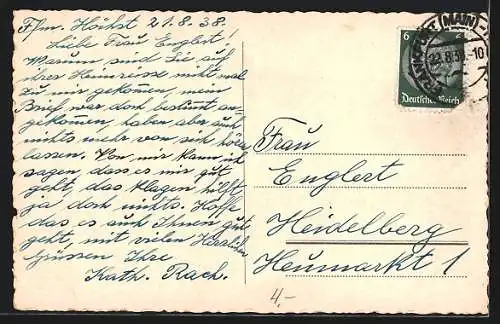 Ffm. Höchst 21.8.38.
Liebe Frau Englert!
Warum sind Sie auf
ihrer Heimreise nicht mal
zu mir gekommen, mein
Brief war doch bestimt an-
gekommen, haben aber auch
nichts mehr von sich hören
lassen. Von mir kann ich
sagen, dass es mir gut
geht, das klagen hilft
ja doch nichts. Hoffe
das es auch Ihnen gut
geht, mit vielen Herzlichen
Grüssen Ihre
Kath. Rach.
6
Deutsches Reich
FRANKFURT (MAIN)
22.8.38.-10
Frau
Englert
Heidelberg
Heumarkt 1
4,-